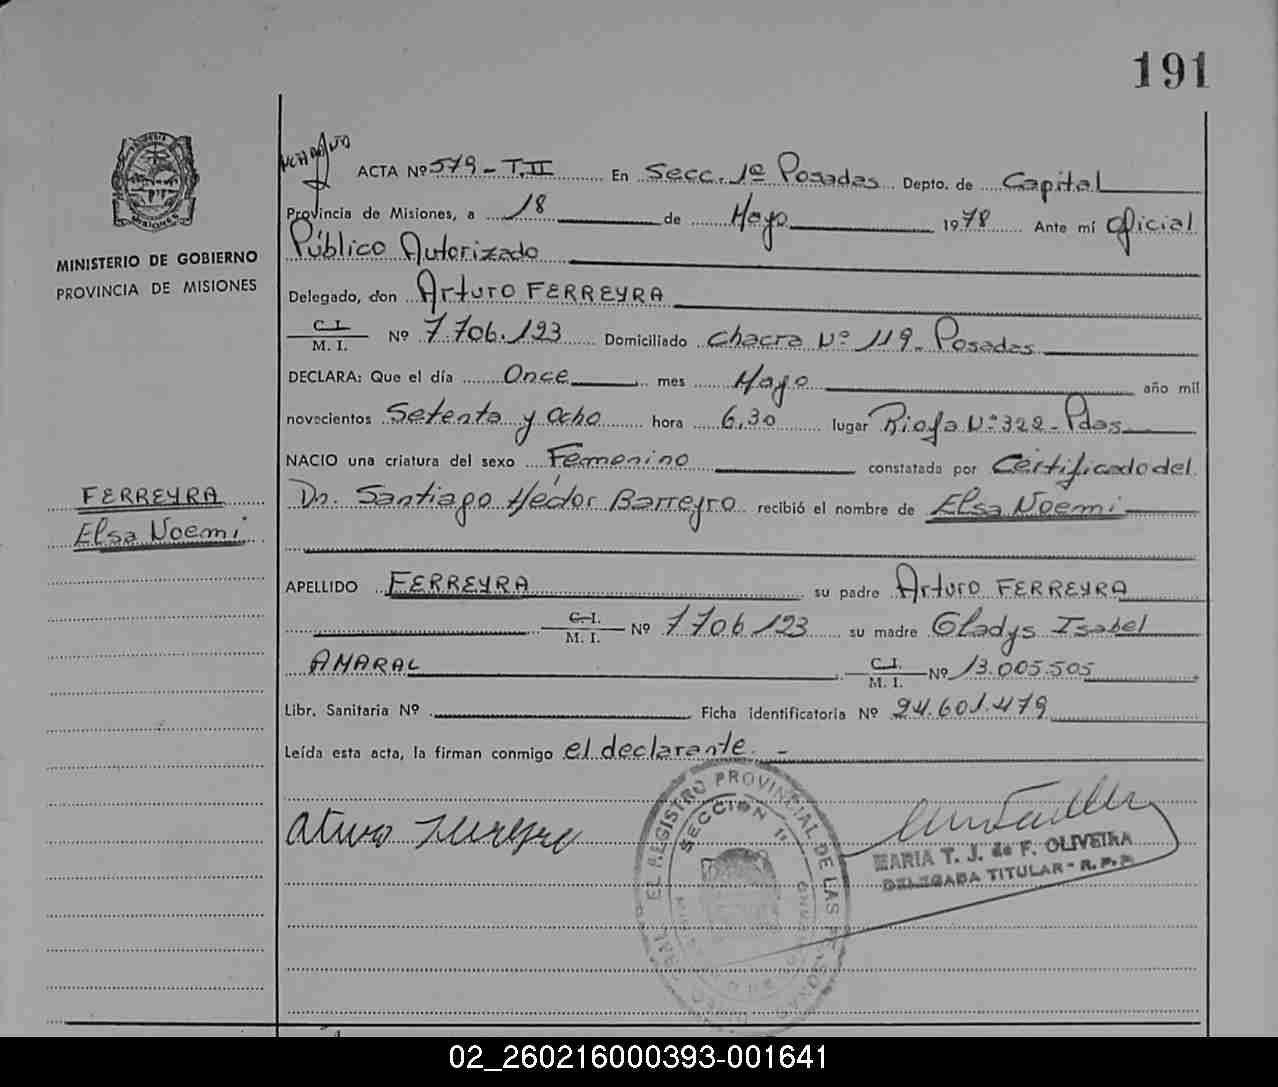 191
ACTA Nº 579 - T. II En Secc. 1º Posadas Depto. de Capital
Provincia de Misiones, a 18 de Mayo 1978 Ante mí Oficial
Público Autorizado
Delegado, don Arturo FERREYRA
C. I. M. I. Nº 7.706.123 Domiciliado Chacra Nº 119 - Posadas
DECLARA: Que el día Once mes Mayo año mil
novecientos Setenta y ocho hora 6,30 lugar Rioja Nº 322 - Pdas
NACIO una criatura del sexo Femenino constatada por Certificado del
Dr. Santiago Héctor Barreyro recibió el nombre de Elsa Noemi
APELLIDO FERREYRA su padre Arturo FERREYRA
C. I. M. I. Nº 7706123 su madre Gladys Isabel
AMARAL C. I. M. I. Nº 13.005.505
Libr. Sanitaria Nº Ficha identificatoria Nº 24.601.479
Leída esta acta, la firman conmigo el declarante. -
MINISTERIO DE GOBIERNO
PROVINCIA DE MISIONES
FERREYRA
Elsa Noemi
REGISTRO PROVINCIAL DE LAS PERSONAS
SECCION 1ª
MARIA T. J. de F. OLIVEIRA
DELEGADA TITULAR - R. P. P.
02_260216000393-001641